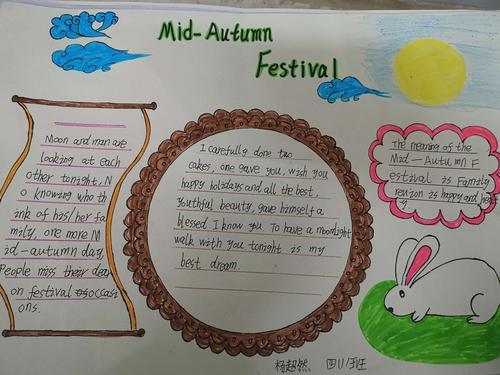 Mid-Autumn
Festival
Moon and man are
looking at each
other tonight, N
o knowing who th
ink of his/her fa
mily, one more M
id-autumn day,
People miss their dear
on festival occasi
ons.
I carefully done two
cakes, one gave you, wish you
happy holidays and all the best,
Youthful beauty, gave himself a
blessed I know you To have a moonlight
walk with you tonight is my
best dream.
The meaning of the
Mid-Autumn F
estival is Family
reunion is happy and
杨超然 四(1)班